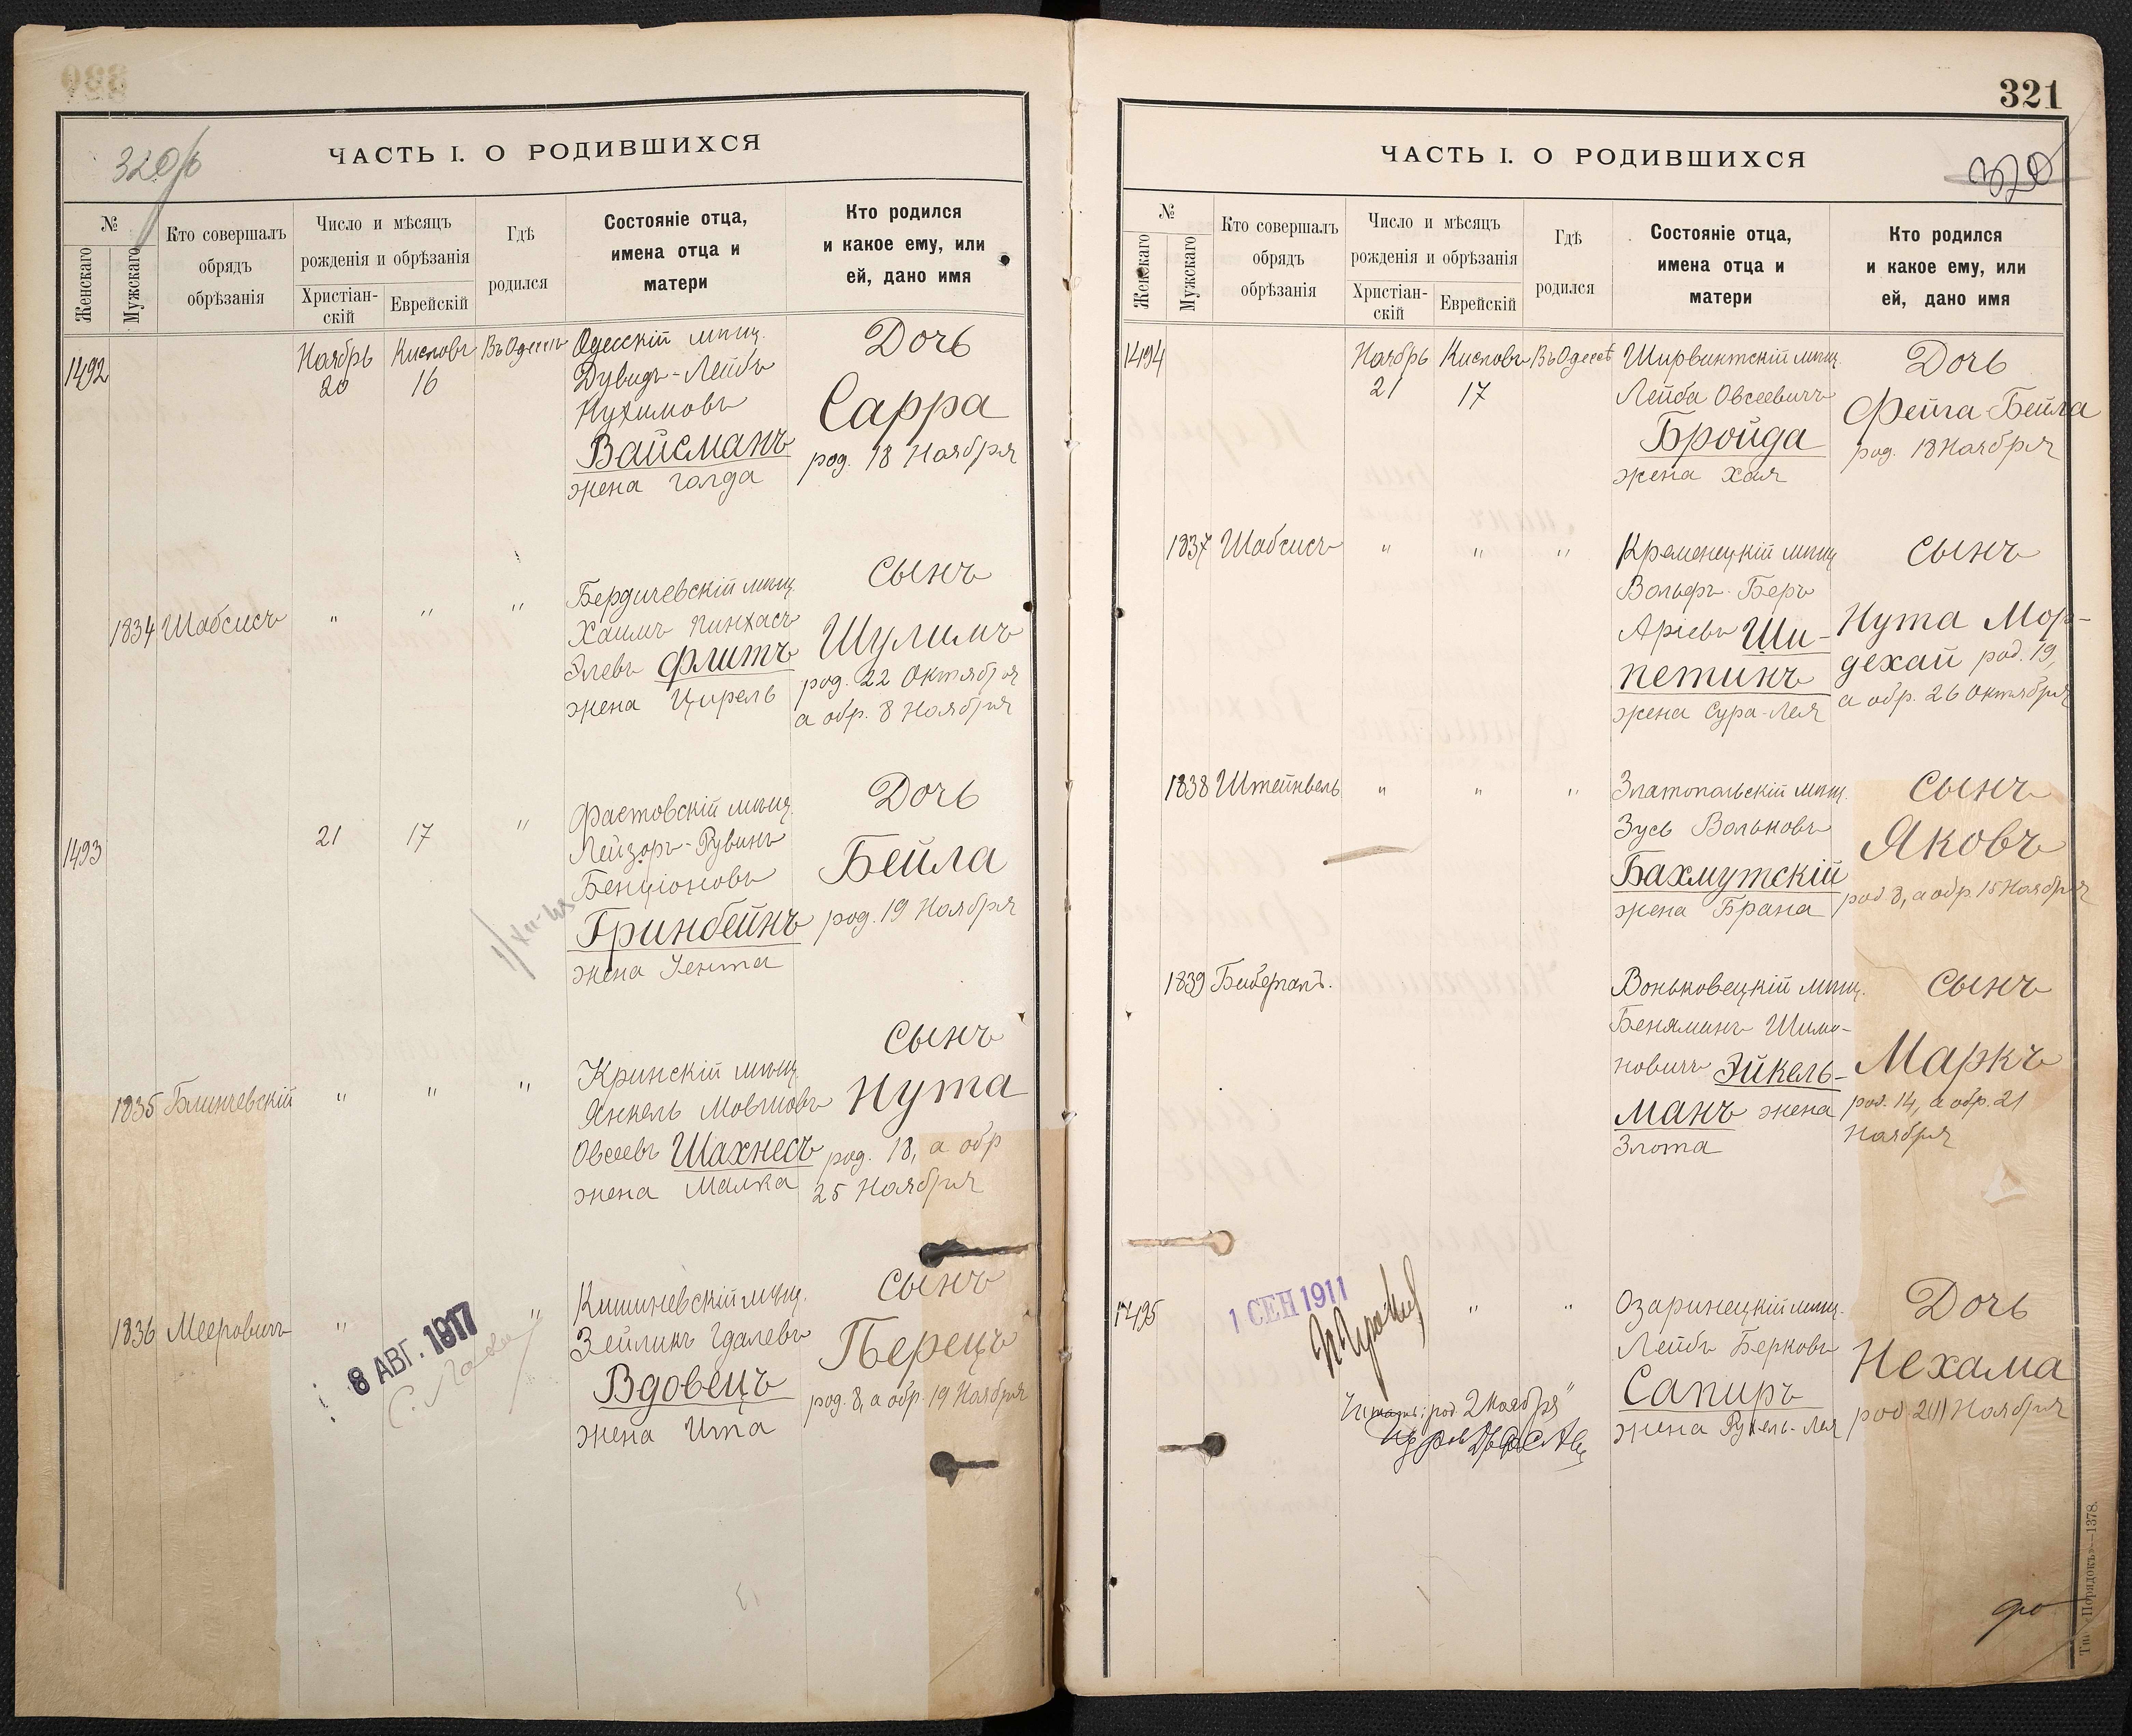 320/б
ЧАСТЬ I. О РОДИВШИХСЯ
№
Женскаго
Мужскаго
Кто совершалъ
обрядъ
обрѣзанія
Число и мѣсяцъ
рожденія и обрѣзанія
Христіан-
скій
Еврейскій
Гдѣ
родился
Состояніе отца,
имена отца и
матери
Кто родился
и какое ему, или
ей, дано имя
1492
Ноябрь
20
Кисловъ
16
Въ Одессѣ
Одесскій мѣщ.
Дувидъ-Лейбъ
Нухимовъ
Вайсманъ
жена Голда
Дочь
Сарра
род. 18 Ноября
1834 Шабсисъ " " "
Бердичевскій мѣщ.
Хаимъ Пинхасъ
Элевъ Флитъ
жена Цирель
Сынъ
Шулимъ
род. 22 Октября
а обр. 8 Ноября
1493
21 17 "
Фастовскій мѣщ.
Лейзоръ-Рувинъ
Бенціоновъ
Гринбейнъ
жена Іента
Дочь
Бейла
род. 19 Ноября
1835 Блинчевскій " " "
Кринскій мѣщ.
Янкель Мовшовъ
Овсеевъ Шахнесъ
жена Малка
Сынъ
Нута
род. 18, а обр
25 Ноября
1836 Мееровичъ " "
8 АВГ. 1917
Кишиневскій мѣщ.
Зейликъ Гдалевъ
Вдовецъ
жена Ита
Сынъ
Перецъ
род. 8, а обр. 19 Ноября
321
320
ЧАСТЬ I. О РОДИВШИХСЯ
№
Женскаго
Мужскаго
Кто совершалъ
обрядъ
обрѣзанія
Число и мѣсяцъ
рожденія и обрѣзанія
Христіан-
скій
Еврейскій
Гдѣ
родился
Состояніе отца,
имена отца и
матери
Кто родился
и какое ему, или
ей, дано имя
1494
Ноябрь
21
Кисловъ
17
Въ Одессѣ
Ширвинтскій мѣщ.
Лейба Овсеевичъ
Бройда
жена Хая
Дочь
Фейга-Бейла
род. 18 Ноября
1837 Шабсисъ " " "
Кременецкій мѣщ
Вольфъ-Беръ
Аріевъ Ши-
петинъ
жена Сура-Лея
Сынъ
Нута Мор-
дехай род. 19,
а обр. 26 Октября
1838 Штейнвель " " "
Златопольскій мѣщ.
Зусь Вольковъ
Бахмутскій
жена Брана
Сынъ
Яковъ
род 8, а обр. 15 Ноября
1839 Биберталъ.
Воньковецкій мѣщ.
Беняминъ Шимо-
новичъ Эйкель-
манъ жена
Злота
Сынъ
Маркъ
род. 14, а обр. 21
Ноября
1495
1 СЕН 1911
" "
род. 2 Ноября"
Озаринецкій мѣщ.
Лейбъ Берковъ
Сапиръ
жена Рухель-Лея
Дочь
Нехама
род 2(1) Ноября
Тип. „Порядокъ"—1378.